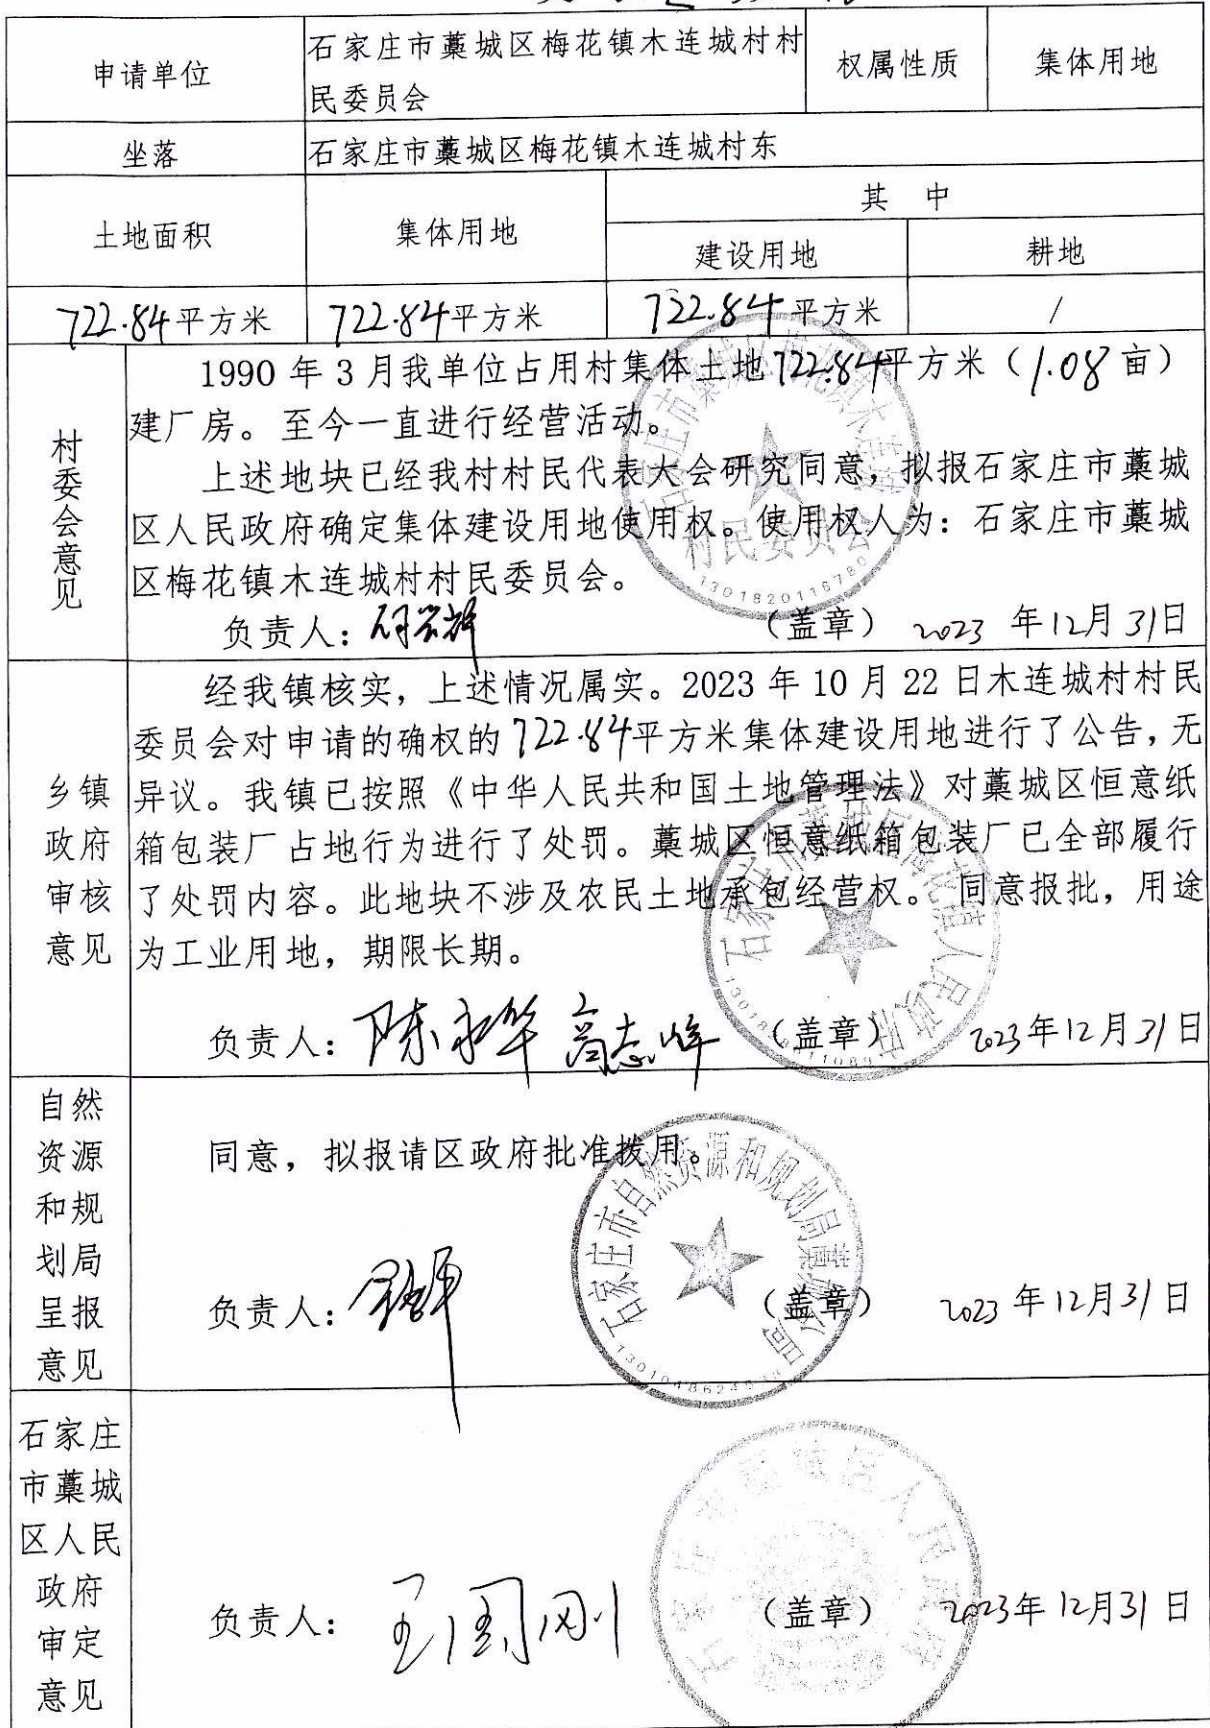 申请单位 石家庄市藁城区梅花镇木连城村村 权属性质 集体用地
民委员会
坐落 石家庄市藁城区梅花镇木连城村东
土地面积 集体用地 其 中
建设用地 耕地
722.84平方米 722.84平方米 722.84平方米 /
村委会意见
1990 年 3 月我单位占用村集体土地722.84平方米（1.08 亩）
建厂房。至今一直进行经营活动。
上述地块已经我村村民代表大会研究同意，拟报石家庄市藁城
区人民政府确定集体建设用地使用权。使用权人为：石家庄市藁城
区梅花镇木连城村村民委员会。
负责人： （盖章） 2023 年12月31日
村民委员会
乡镇
政府
审核
意见
经我镇核实，上述情况属实。2023 年 10 月 22 日木连城村村民
委员会对申请的确权的722.84平方米集体建设用地进行了公告，无
异议。我镇已按照《中华人民共和国土地管理法》对藁城区恒意纸
箱包装厂占地行为进行了处罚。藁城区恒意纸箱包装厂已全部履行
了处罚内容。此地块不涉及农民土地承包经营权。 同意报批，用途
为工业用地，期限长期。
负责人：陈永华 高志峰 （盖章） 2023年12月31日
自然
资源
和规
划局
呈报
意见
同意，拟报请区政府批准拨用。
石家庄市自然资源和规划局藁城分局
负责人： （盖章） 2023 年12月31日
石家庄
市藁城
区人民
政府
审定
意见
负责人：王国刚 （盖章） 2023年12月31日